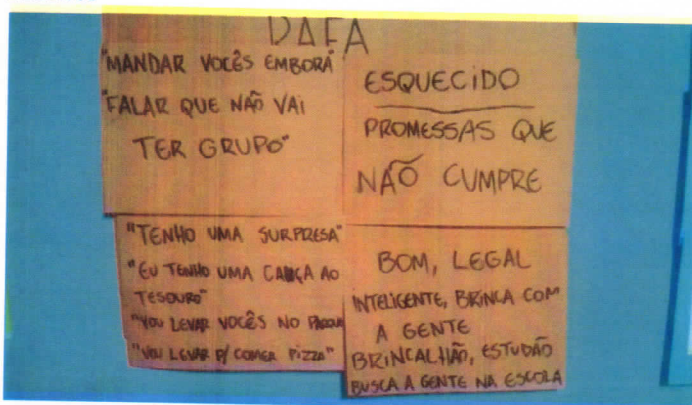 DAFA
"MANDAR VOCÊS EMBORA"
"FALAR QUE NÃO VAI
TER GRUPO"
ESQUECIDO
PROMESSAS QUE
NÃO CUMPRE
"TENHO UMA SURPRESA"
"EU TENHO UMA CAÇA AO
TESOURO"
"VOU LEVAR VOCÊS NO PARQUE
"VOU LEVAR P/ COMER PIZZA"
BOM, LEGAL
INTELIGENTE, BRINCA COM
A GENTE
BRINCALHÃO, ESTUDÃO
BUSCA A GENTE NA ESCOLA